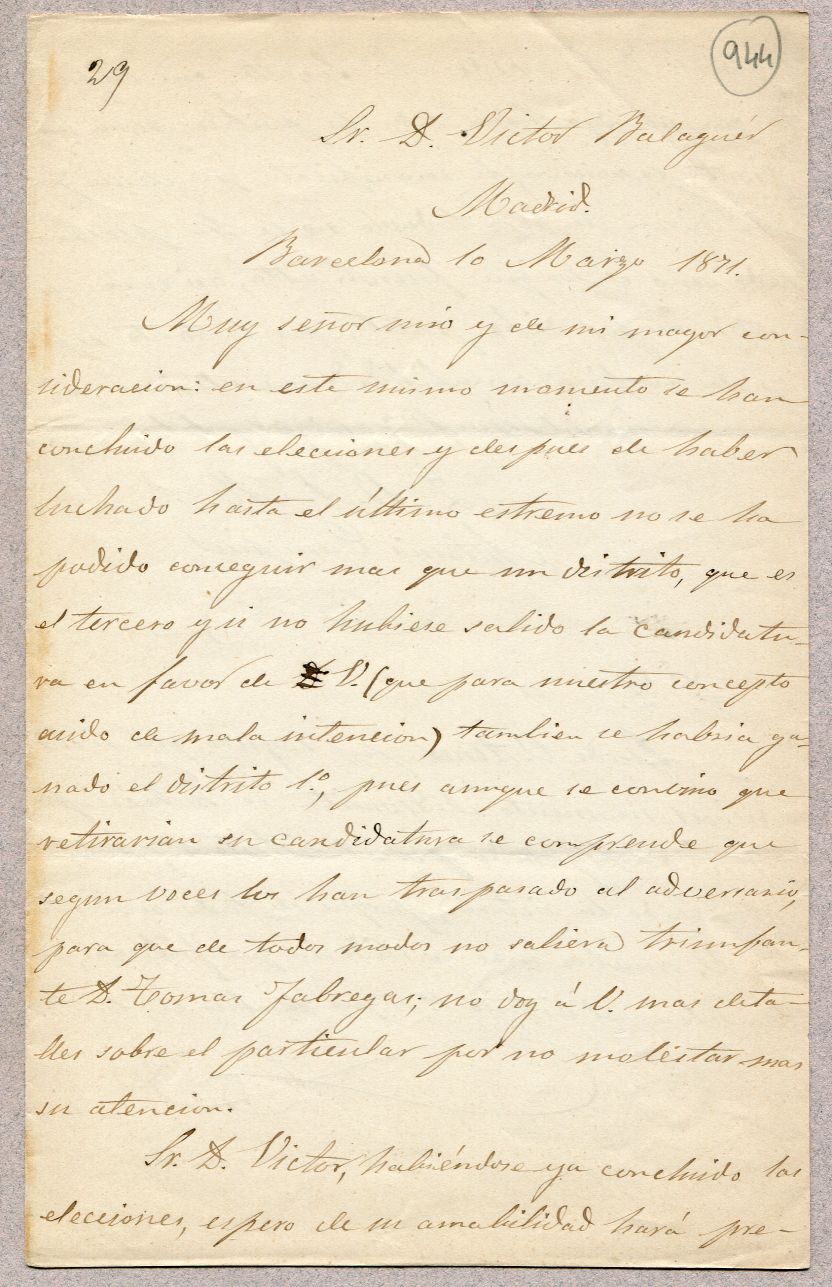 944
29
Sr. D. Victor Balaguér
Madrid.
Barcelona 10 Marzo 1871.
Muy señor mio y de mi mayor con-
sideracion: en este mismo momento se han
concluido las elecciones y despues de haber
luchado hasta el último estremo no se ha
podido conseguir mas que un distrito, que es
el tercero y si no hubiese salido la candidatu-
ra en favor de V. (que para nuestro concepto
asido de mala intencion) tambien se habria ga-
nado el distrito 1º, pues aunque se convino que
retirarian su candidatura se comprende que
segun voces los han traspasado al adversario,
para que de todos modos no saliera triunfan-
te D. Tomas Fabregas; no doy á V. mas deta-
lles sobre el particular por no moléstar mas
su atencion.
Sr. D. Victor, habiéndose ya concluido las
elecciones, espero de su amabilidad hará pre-